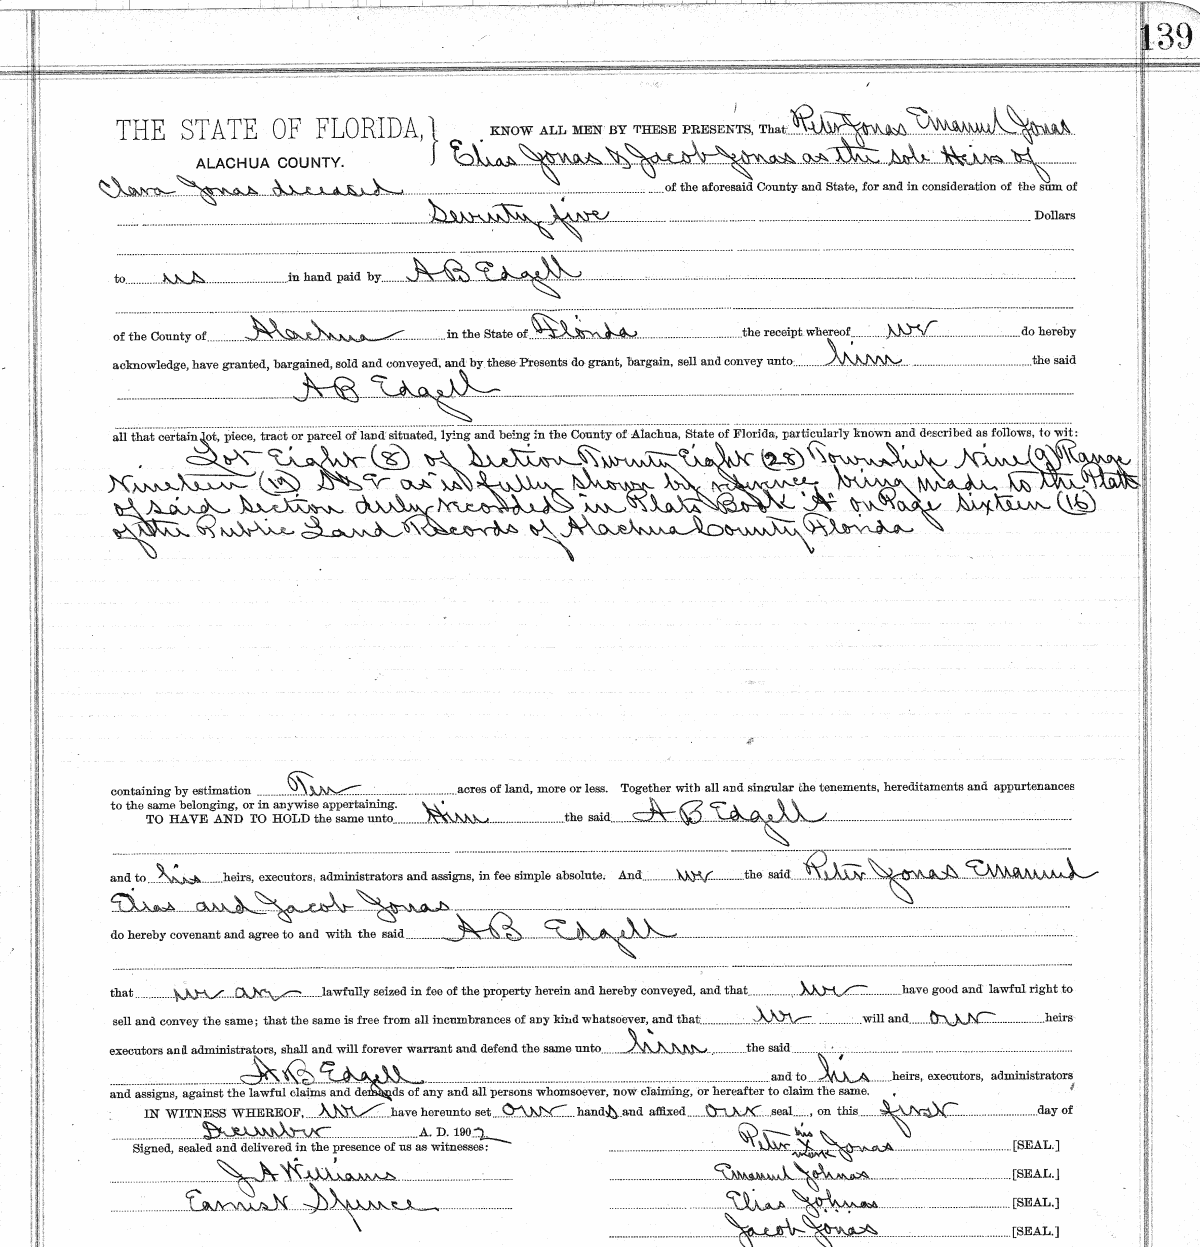 139
THE STATE OF FLORIDA,
ALACHUA COUNTY.
KNOW ALL MEN BY THESE PRESENTS, That Peter Jonas Emanuel Jonas
Elias Jonas & Jacob Jonas as the sole Heirs of
Clara Jonas deceased of the aforesaid County and State, for and in consideration of the sum of
Seventy five Dollars
to us in hand paid by A B Edgell
of the County of Alachua in the State of Florida the receipt whereof we do hereby
acknowledge, have granted, bargained, sold and conveyed, and by these Presents do grant, bargain, sell and convey unto him the said
A B Edgell
all that certain lot, piece, tract or parcel of land situated, lying and being in the County of Alachua, State of Florida, particularly known and described as follows, to wit:
Lot Eight (8) of Section Twenty Eight (28) Township Nine (9) Range
Nineteen (19) S & E as is fully shown by reference being made to the Plats
of said Section duly recorded in Plats Book "A" on Page Sixteen (16)
of the Public Land Records of Alachua County Florida
containing by estimation Ten acres of land, more or less. Together with all and singular the tenements, hereditaments and appurtenances
to the same belonging, or in anywise appertaining.
TO HAVE AND TO HOLD the same unto Him the said A B Edgell
and to his heirs, executors, administrators and assigns, in fee simple absolute. And we the said Peter Jonas Emanuel
Elias and Jacob Jonas
do hereby covenant and agree to and with the said A B Edgell
that we are lawfully seized in fee of the property herein and hereby conveyed, and that we have good and lawful right to
sell and convey the same; that the same is free from all incumbrances of any kind whatsoever, and that we will and our heirs
executors and administrators, shall and will forever warrant and defend the same unto him the said
A B Edgell and to his heirs, executors, administrators
and assigns, against the lawful claims and demands of any and all persons whomsoever, now claiming, or hereafter to claim the same.
IN WITNESS WHEREOF, we have hereunto set our hands and affixed our seal, on this first day of
December A. D. 1902
Signed, sealed and delivered in the presence of us as witnesses:
Peter his X mark Jonas [SEAL.]
J A Williams
Emanuel Johnas [SEAL.]
Earnest Spence
Elias Johnas [SEAL.]
Jacob Jonas [SEAL.]